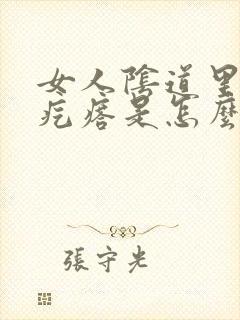 女人陰道里
疙瘩是怎麼
張守光